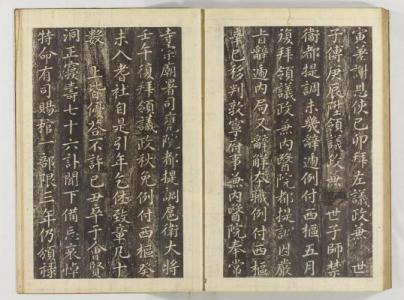 寅兼謝恩使己卯拜左議政兼　世
子傅庚辰陞領議政兼　世子師禁
衛都提調未幾辭遞例付西樞五月
復拜領議政兼內醫院都提調因嚴
旨辭遞內局又辭解本職例付西樞
尋已移判敦寧府事兼內醫院奉常
寺宗廟署司饔院都提調扈衛大將
壬午復拜領議政秋免例付西樞癸
未入耆社自是引年乞休致章凡十
數　上皆優答不許己丑卒于會賢
洞正寢壽七十六訃聞下備忘哀悼
特命有司賜棺一部限三年仍頒祿